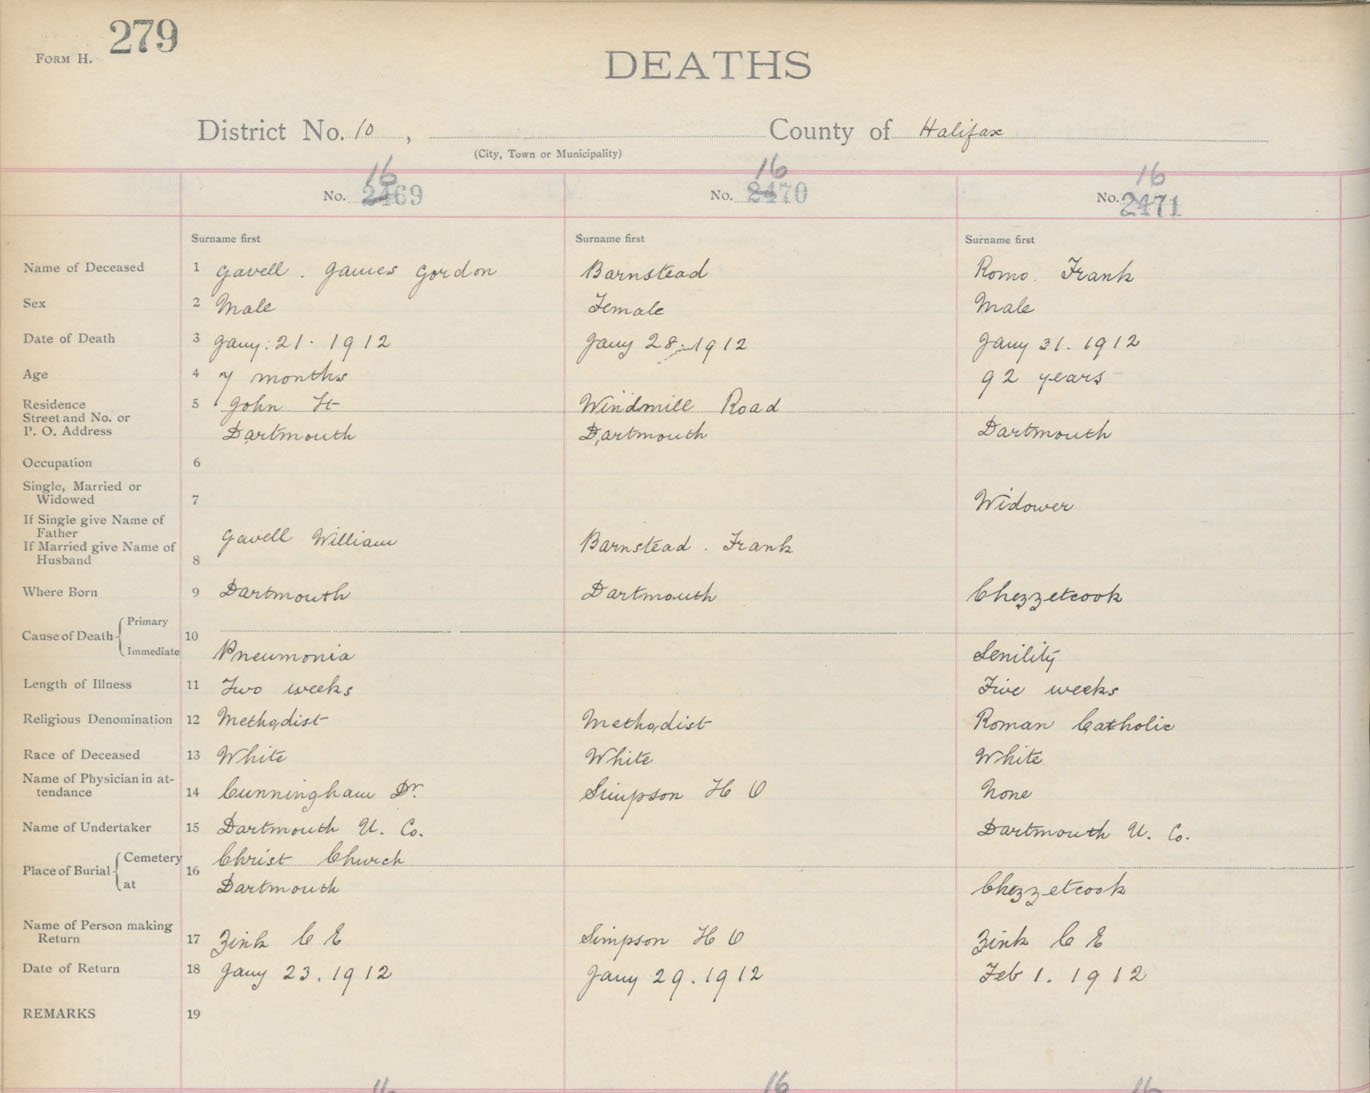 FORM H. 279
DEATHS
District No. 10 , County of Halifax
(City, Town or Municipality)
16 16 16
No. 2469 No. 2470 No. 2471
Surname first Surname first Surname first
Name of Deceased 1 Gavell . James Gordon Barnstead Romo. Frank
Sex 2 Male Female Male
Date of Death 3 Jany: 21. 1912 Jany 28. 1912 Jany 31. 1912
Age 4 7 months 92 years
Residence 5 John St Windmill Road
Street and No. or
P. O. Address Dartmouth Dartmouth Dartmouth
Occupation 6
Single, Married or
Widowed 7 Widower
If Single give Name of
Father
If Married give Name of Gavell William Barnstead . Frank
Husband 8
Where Born 9 Dartmouth Dartmouth Chezzetcook
Primary
Cause of Death 10
Immediate Pneumonia Senility
Length of Illness 11 Two weeks Five weeks
Religious Denomination 12 Methodist Methodist Roman Catholic
Race of Deceased 13 White White White
Name of Physician in at-
tendance 14 Cunningham Dr. Simpson H O None
Name of Undertaker 15 Dartmouth U. Co. Dartmouth U. Co.
Cemetery Christ Church
Place of Burial 16
at Dartmouth Chezzetcook
Name of Person making
Return 17 Zink C E Simpson H O Zink C E
Date of Return 18 Jany 23. 1912 Jany 29. 1912 Feb 1. 1912
REMARKS 19
16 16 16